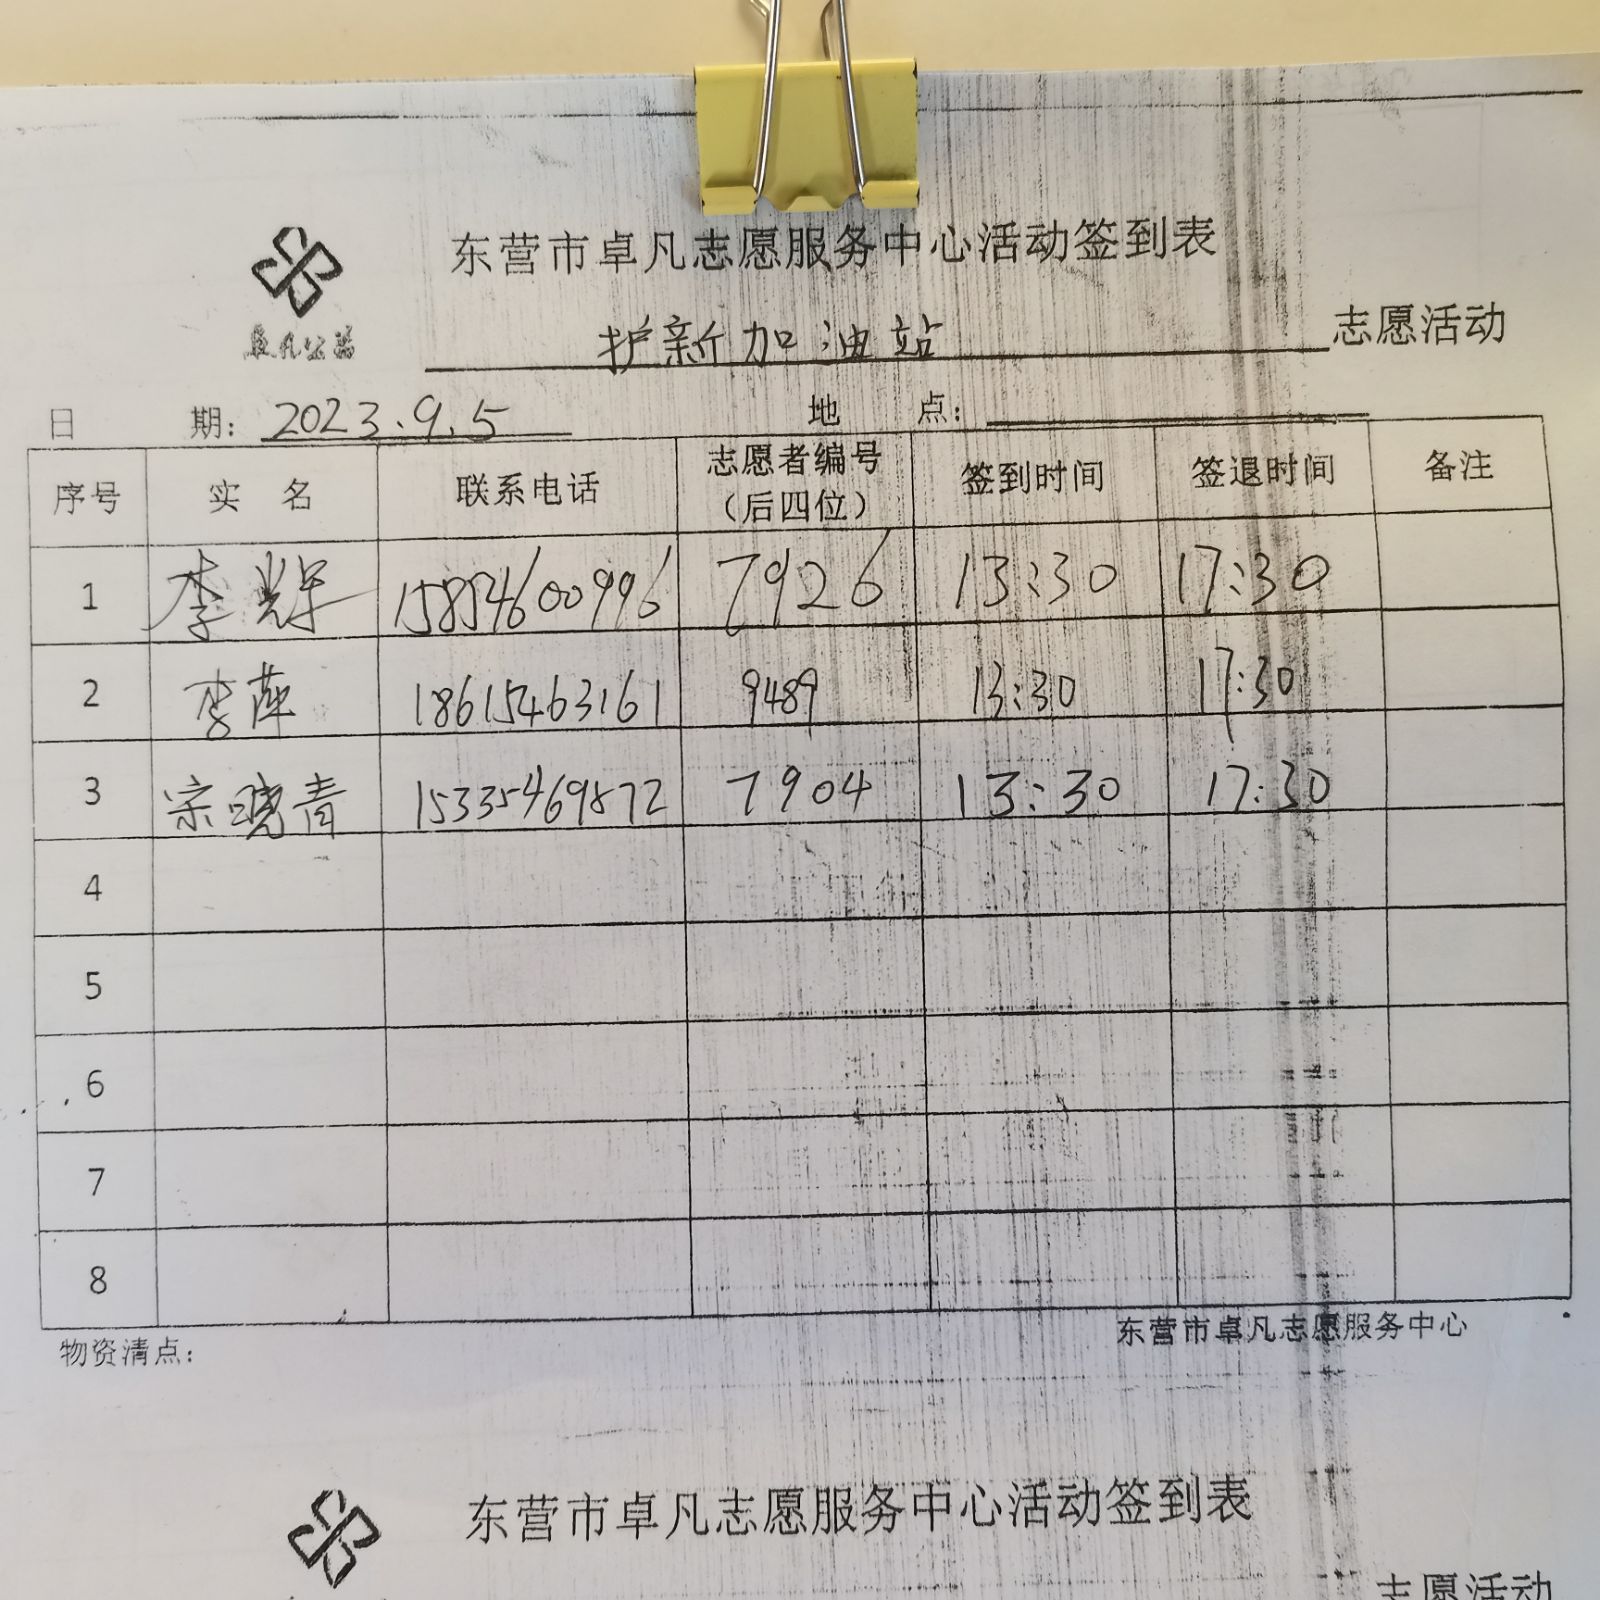 东营市卓凡志愿服务中心活动签到表
卓凡公益
护新加油站 志愿活动
日 期: 2023.9.5 地 点:
序号 实 名 联系电话 志愿者编号（后四位） 签到时间 签退时间 备注
1 李辉 15854600996 7926 13:30 17:30
2 李萍 18615463161 9489 13:30 17:30
3 宗晓青 15335469872 7904 13:30 17:30
4
5
6
7
8
物资清点: 东营市卓凡志愿服务中心
东营市卓凡志愿服务中心活动签到表
志愿活动